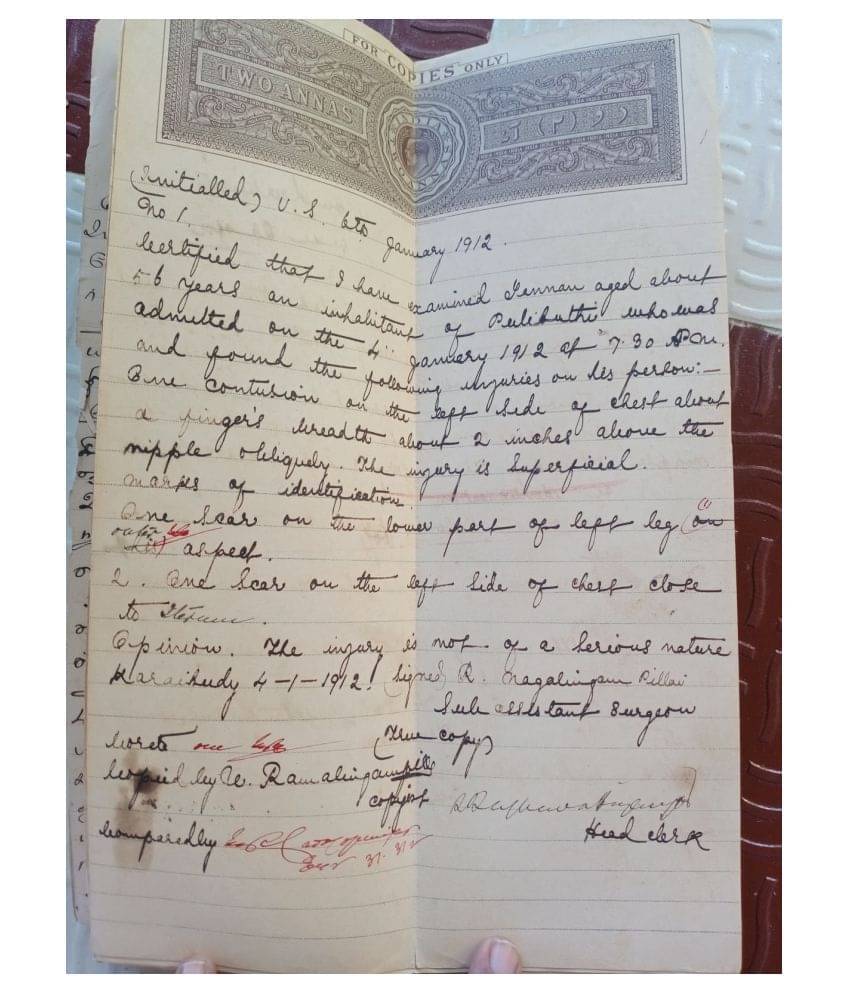 FOR COPIES ONLY
TWO ANNAS
(Initialled) V. S. 6th January 1912.
No 1.
Certified that I have examined Tennan aged about
56 years an inhabitant of Pulikuthi who was
admitted on the 4th January 1912 at 7.30 P.M.
and found the following injuries on his person:-
One contusion on the left side of chest about
a finger's breadth about 2 inches above the
nipple obliquely. The injury is Superficial.
Marks of identification.
One Scar on the lower part of left leg (on
outer
its) aspect.
2. One Scar on the left side of chest close
to Sternum.
Opinion. The injury is not of a serious nature
Karaikudy 4-1-1912. (Signed) R. Nagalingam Pillai
Sub assistant Surgeon
(True copy)
Corrts one
Copied by V. Ramalingam pillai
copyist
Compared by
Head clerk